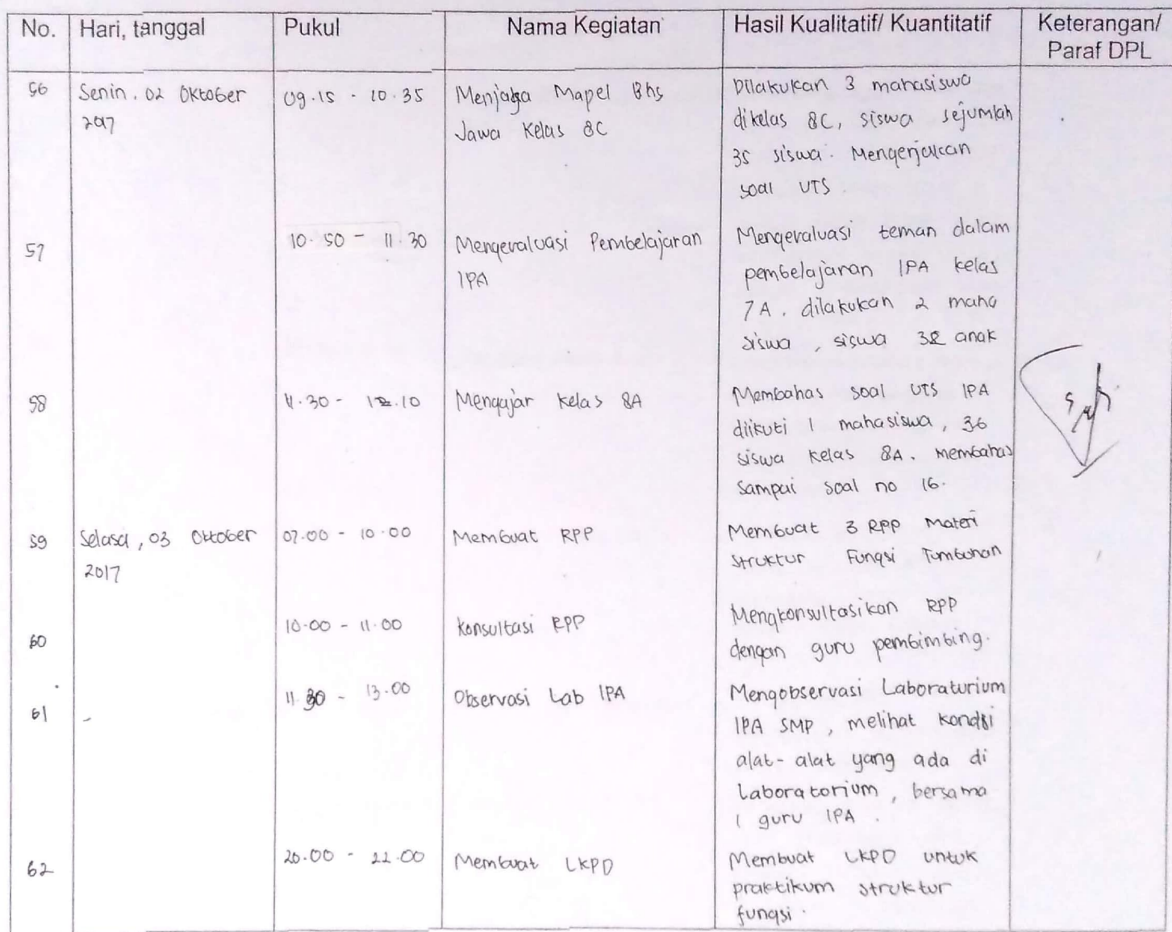 No. Hari, tanggal Pukul Nama Kegiatan Hasil Kualitatif/ Kuantitatif Keterangan/
Paraf DPL
56 Senin, 02 Oktober 09.15 - 10.35 Menjaga Mapel Bhs Dilakukan 3 mahasiswa
2017 Jawa Kelas 8C dikelas 8C, siswa sejumlah
35 siswa. Mengerjakan
soal UTS
57 10.50 - 11.30 Mengevaluasi Pembelajaran Mengevaluasi teman dalam
IPA pembelajaran IPA kelas
7A. dilakukan 2 maha
siswa, siswa 32 anak
58 11.30 - 12.10 Mengajar kelas 8A Membahas soal UTS IPA
diikuti 1 mahasiswa, 36
siswa kelas 8A. membahas
sampai soal no 16.
59 Selasa, 03 Oktober 07.00 - 10.00 Membuat RPP Membuat 3 RPP Materi
2017 Struktur Fungsi Tumbuhan
60 10.00 - 11.00 Konsultasi RPP Mengkonsultasikan RPP
dengan guru pembimbing.
61 - 11.30 - 13.00 Observasi Lab IPA Mengobservasi Laboraturium
IPA SMP, melihat kondisi
alat-alat yang ada di
Laboratorium, bersama
1 guru IPA.
62 20.00 - 22.00 Membuat LKPD Membuat LKPD untuk
praktikum struktur
fungsi.